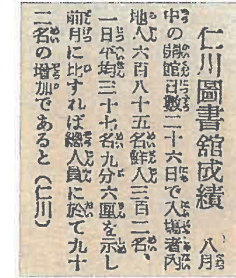 仁川圖書館成績
八月
中の開館日數二十六日で入場者內
地人六百八十五名鮮人三百二名、
一日平均三十七名九分六厘を示し
前月に比すれば總人員に於て九十
二名の增加であると（仁川）